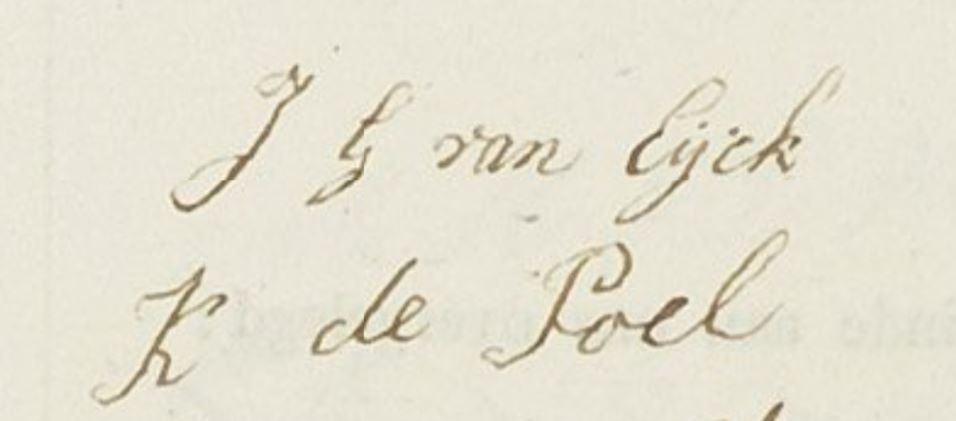 J G van Eijck
K de Poel